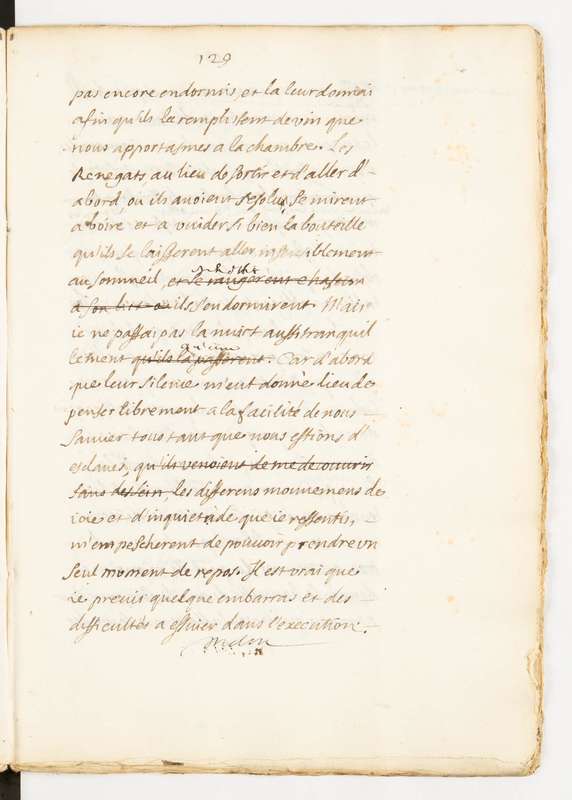 129
pas encore endormis, et la leur donnai
afin qu'ils la remplissent de vin que
nous apportasmes a la chambre. Les
Renegats au lieu de sortir et d'aller d'
abord, ou ils avoient resolu, se mirent
a boire et a vuider si bien la bouteille
qu'ils se laisserent aller insensiblement
au sommeil, et se rangerent chascun
a son lict ou ils s'endormirent. Mais
ie ne passai pas la nuict aussi tranquil
lement qu'ils la passerent. Car d'abord
que leur silence m'eut donné lieu de
penser librement a la facilité de nous
sauver tous tant que nous estions d'
esclaves, qu'ils venoient de me decouvrir
sans dessein, les differens mouvemens de
ioie et d'inquietude que ie ressentis,
m'empescherent de pouvoir prendre un
seul moment de repos. Il est vrai que
ie previs quelque embarras et des
difficultés a essuier dans l'execution.